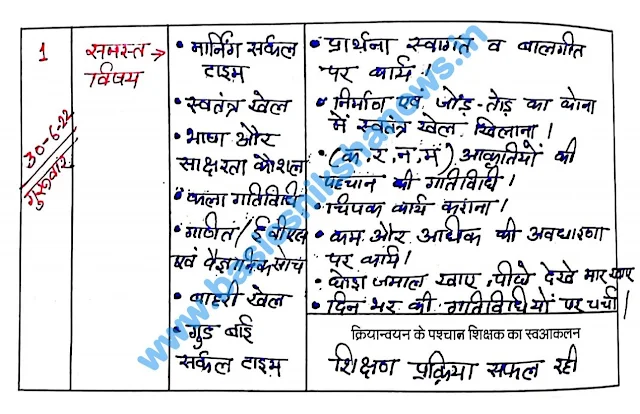 1
30-6-22
गुरूवार
समस्त →
विषय
• मार्निंग सर्कल
टाइम
• स्वतंत्र खेल
• भाषा और
साक्षरता कौशल
• कला गतिविधि
• गणित/ ई वी एस
एवं वैज्ञानिक सोच
• बाहरी खेल
• गुड बाई
सर्कल टाइम
• प्रार्थना स्वागत व बालगीत
पर कार्य।
• निर्माण एवं जोड़-तोड़ का कोना
में स्वतंत्र खेल खिलाना।
• (क, र, न, म) आकृतियों की
पहचान की गतिविधि।
• चिपक कार्य कराना।
• कम और अधिक की अवधारणा
पर कार्य।
• कोड़ा जमाल खाए, पीछे देखे मार खाए
• दिन भर की गतिविधियों पर चर्चा।
क्रियान्वयन के पश्चान शिक्षक का स्वआकलन
शिक्षण प्रक्रिया सफल रही
www.basicshikshanews.in